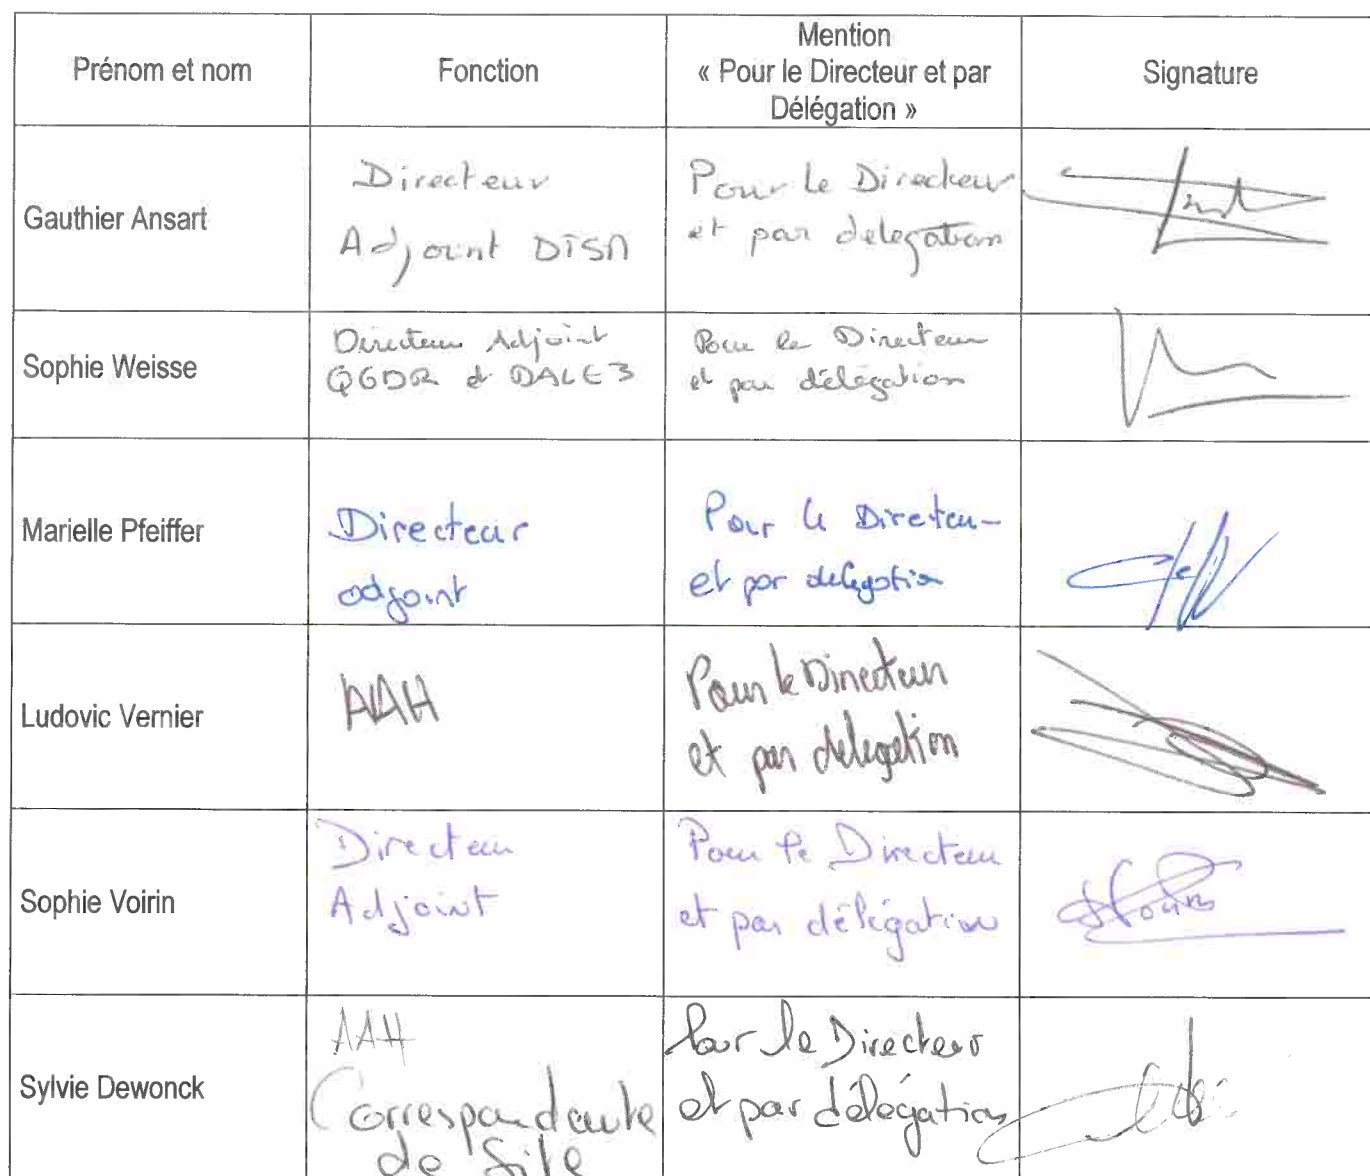 Prénom et nom
Fonction
Mention
« Pour le Directeur et par
Délégation »
Signature
Gauthier Ansart
Directeur
Adjoint DISA
Pour le Directeur
et par delegation
Sophie Weisse
Directeur Adjoint
QGDR et DALE3
Pour le Directeur
et par délégation
Marielle Pfeiffer
Directeur
adjoint
Pour le Directeur
et par delegation
Ludovic Vernier
AAH
Pour le Directeur
et par delegation
Sophie Voirin
Directeur
Adjoint
Pour le Directeur
et par délégation
Sylvie Dewonck
AAH
Correspondante
de Site
Pour le Directeur
et par délégation